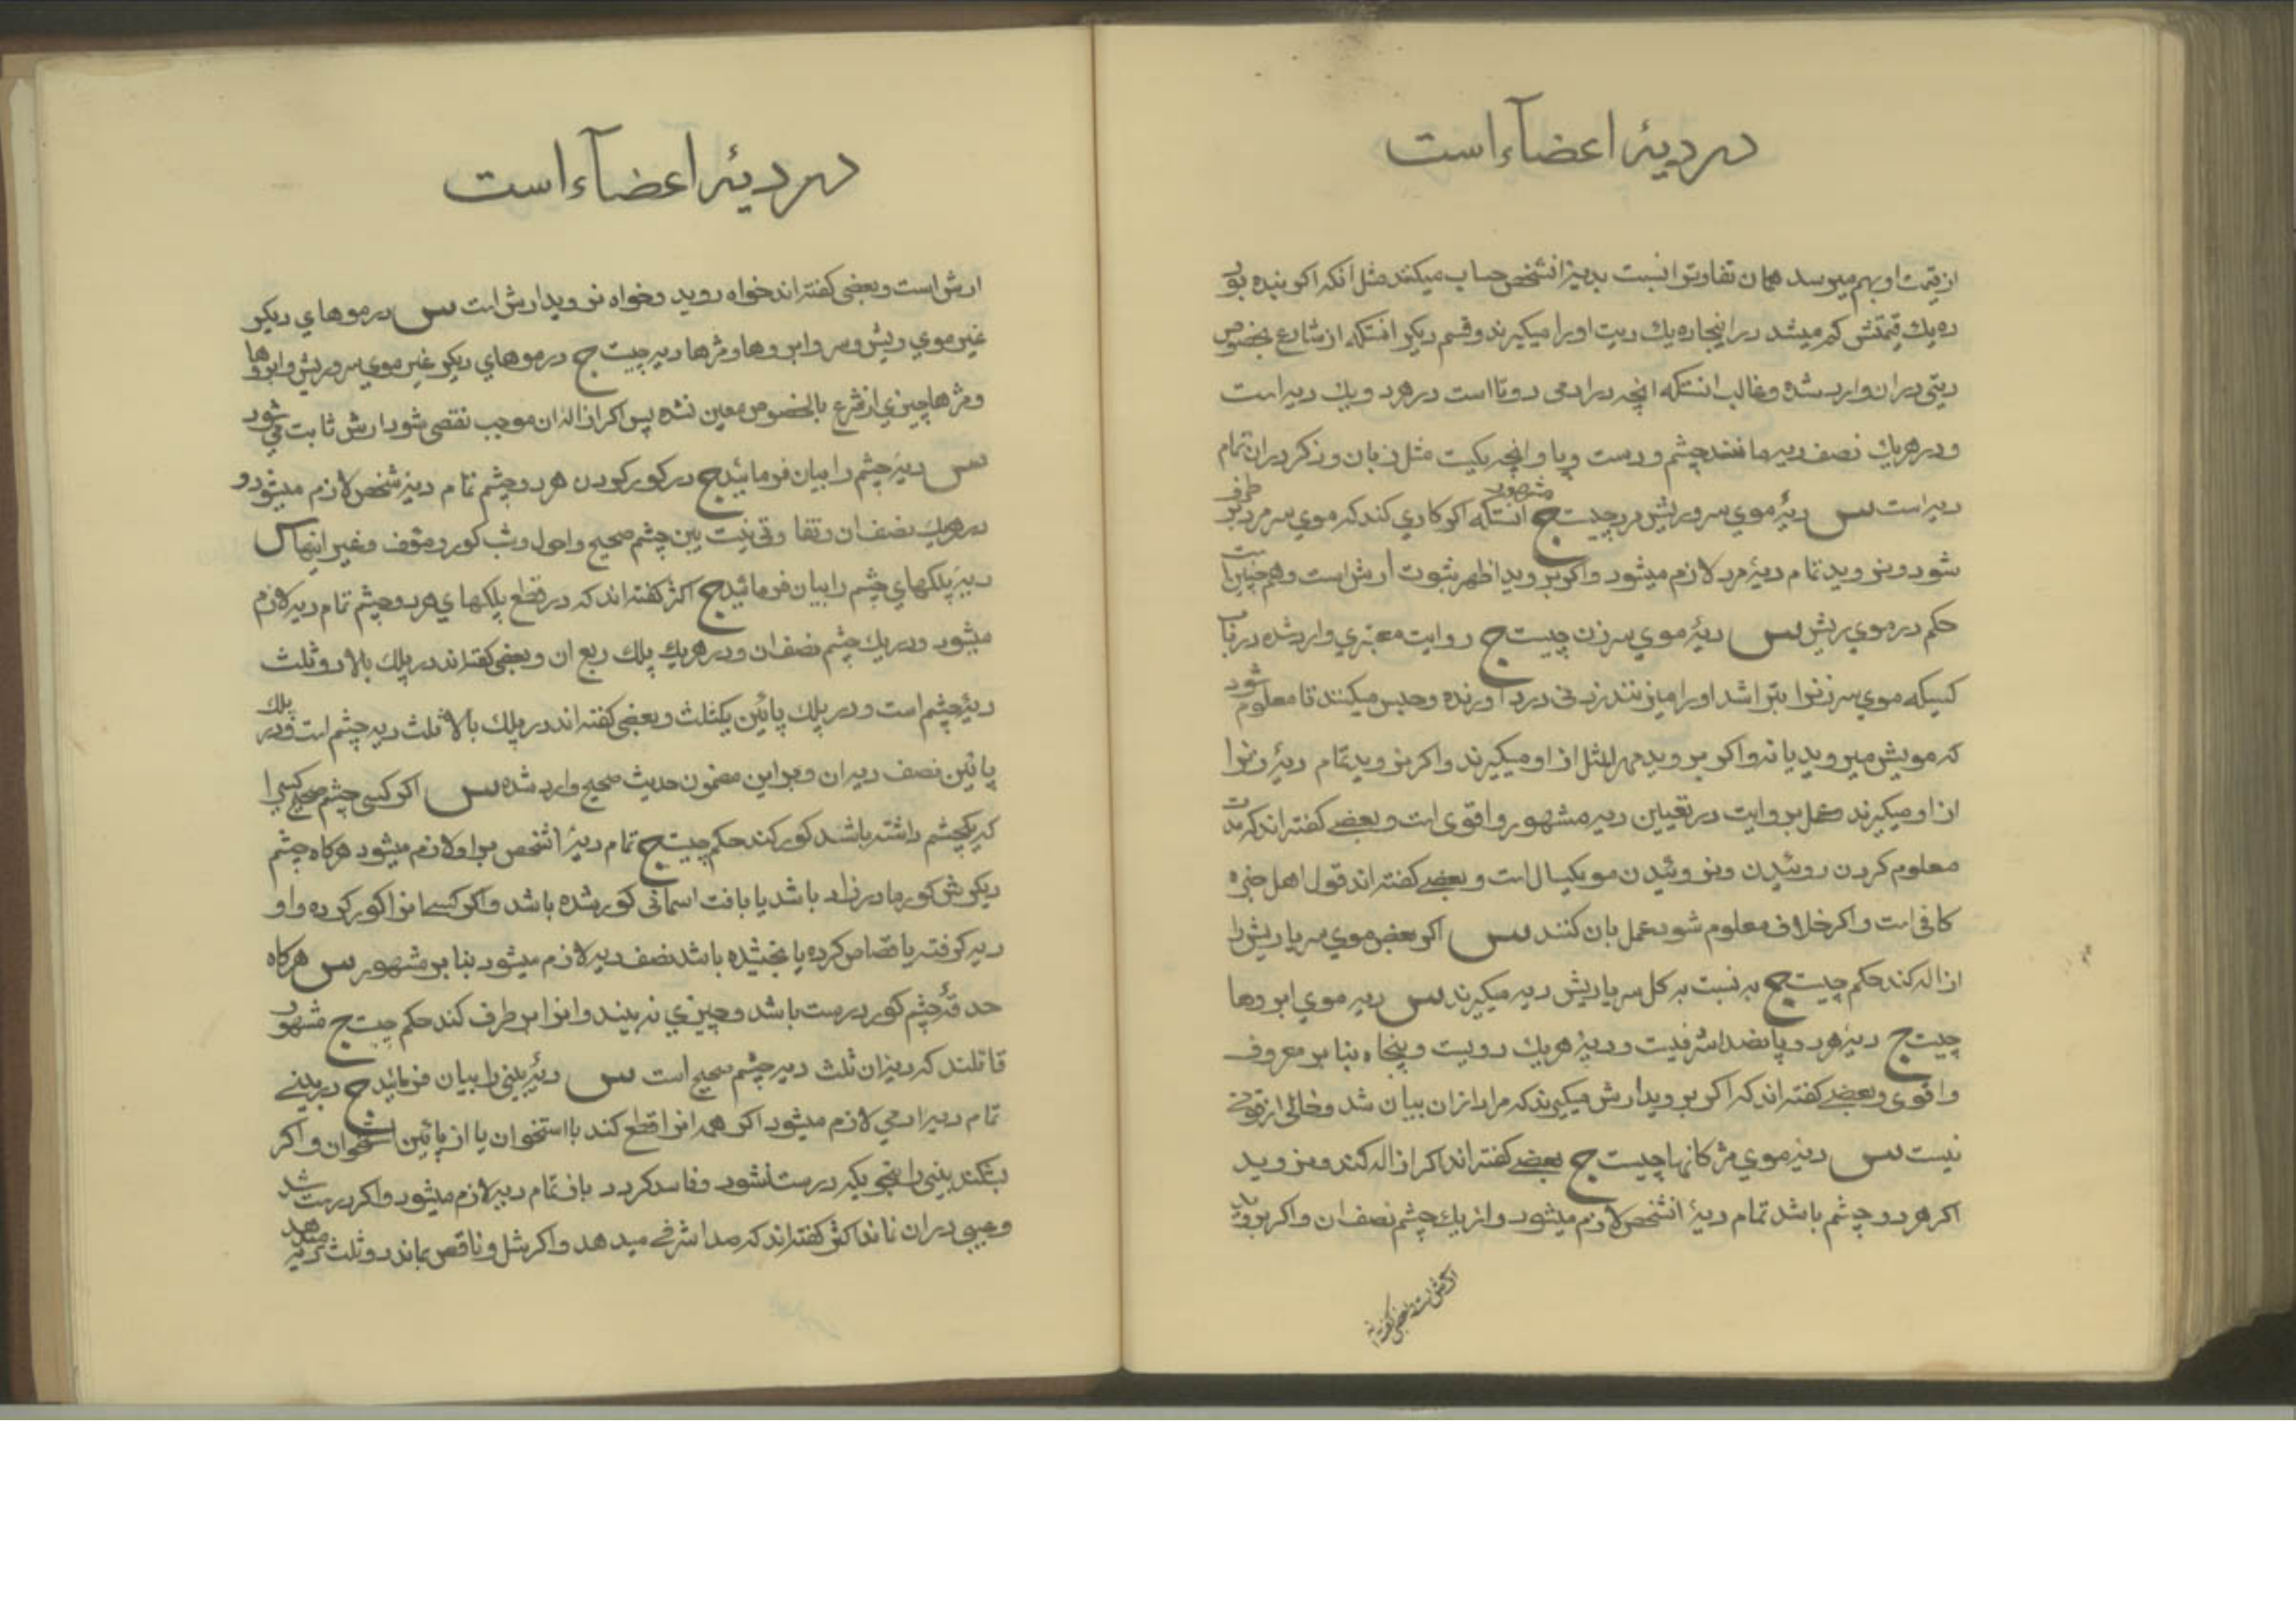 در دیۀ اعضآء است
از قیمت او بهم میرسد همان تفاوترا نسبت بدیۀ انشخص حساب میکنند مثل انکه اکر بنده بود
ده یك قیمتش کم میشد در اینجا ده یك دیت او را میکیرند و قسم دیکر انستکه از شارع بخصوص
دیتی در ان وارد شده و غالب انستکه انچه در ادمی دو تا است در هر دو یك دیه است
و در هر یك نصف دیه مانند چشم و دست و پا و انچه یکیست مثل زبان و ذکر در ان تمام
دیه است س دیۀ موی سر و ریش مرد چیست ج مشهور انستکه اکر کاری کند که موی سر مرد بر طرف
شود و نروید تمام دیۀ مرد لازم میشود و اکر بروید اظهر ثبوت ارش است و همچنین است
حکم در موی ریش س دیۀ موی سر زن چیست ج روایت معتبری وارد شده در باب
کسیکه موی سر زنرا بتراشد او را میزنند زدنی درد اورنده و حبس میکنند تا معلوم شود
که مویش میروید یا نه و اکر بروید مهر المثل از او میکیرند و اکر نروید تمام دیۀ زنرا
از او میکیرند عمل بروایت در تعیین دیه مشهور و اقوی است و بعضی کفته اند که مدت
معلوم کردن روئیدن و نروئیدن مو یکسال است و بعضی کفته اند قول اهل خبره
کافی است و اکر خلاف معلوم شود عمل بان کنند س اکر بعض موی سر یا ریش را
ازاله کند حکم چیست ج به نسبت به کل سر یا ریش دیه میکیرند س دیه موی ابروها
چیست ج دیۀ هر دو پانصد اشرفیست و دیۀ هر یك دویست و پنجاه بنا بر معروف
و اقوی و بعضی کفته اند که اکر بروید ارش میکیرند که مراد از ان بیان شد و خالی از قوتی
نیست س دیۀ موی مژکانها چیست ج بعضی کفته اند اکر ازاله کند و نروید
اکر هر دو چشم باشد تمام دیۀ انشخص لازم میشود و از یك چشم نصف ان و اکر بروید
ارش است و بعضی کفته اند
در دیۀ اعضآء است
ارش است و بعضی کفته اند خواه روید و خواه نروید ارش است س در موهای دیکر
غیر موی ریش و سر و ابروها و مژها دیه چیست ج در موهای دیکر غیر موی سر و ریش و ابروها
و مژها چیزی از شرع بالخصوص معین نشده پس اکر ازاله ان موجب نقصی شود ارش ثابت می شود
س دیۀ چشم را بیان فرمائید ج در کور کردن هر دو چشم تمام دیۀ شخص لازم میشود و
در هر یك نصف ان و تفاوتی نیست بین چشم صحیح و احول و شب کور و مؤف و غیر اینها س
دیۀ پلکهای چشم را بیان فرمائید ج اکثر کفته اند که در قطع پلکهای هر دو چشم تمام دیه لازم
میشود و در یك چشم نصف ان و در هر یك پلك ربع ان و بعضی کفته اند در پلك بالا دو ثلث
دیۀ چشم است و در پلك پائین یکثلث و بعضی کفته اند در پلك بالا ثلث دیه چشم است و در پلك
پائین نصف دیه ان و بر این مضمون حدیث صحیح وارد شده س اکر کسی چشم صحیح کسی را
که یکچشم داشته باشد کور کند حکم چیست ج تمام دیۀ انشخص بر او لازم میشود هرکاه چشم
دیکرش کور مادر زاد باشد یا بافت اسمانی کور شده باشد و اکر کسی انرا کور کرده و او
دیه کرفته یا قصاص کرده یا بخشیده باشد نصف دیه لازم میشود بنا بر مشهور س هرکاه
حدقۀ چشم کور درست باشد و چیزی نه بیند و انرا بر طرف کند حکم چیست ج مشهور
قائلند که دیه ان ثلث دیه چشم صحیح است س دیۀ بینی را بیان فرمائید ج در بینی
تمام دیه ادمی لازم میشود اکر همه انرا قطع کند با استخوان یا از پائین استخوان و اکر
بشکند بینی را بنحویکه درست نشود و فاسد کردد باز تمام دیه لازم میشود و اکر درست شد
و عیبی در ان نماند اکثر کفته اند که صد اشرفی میدهد و اکر شل و ناقص بماند دو ثلث دیه میدهد